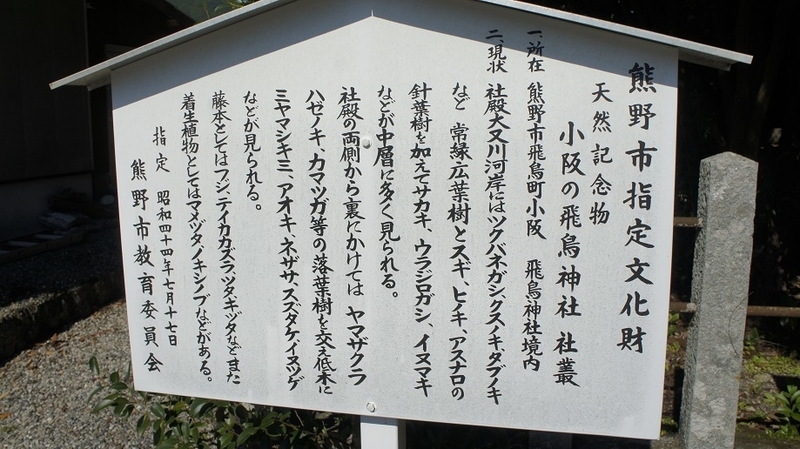 熊野市指定文化財
天然記念物
小阪の飛鳥神社 社叢
一、所在 熊野市飛鳥町小阪 飛鳥神社境内
二、現状 社殿大又川河岸にはツクバネガシクスノキ、タブノキ
など 常緑広葉樹とスギ、ヒノキ、アスナロの
針葉樹を加えてサカキ、ウラジロガシ、イヌマキ
などが中層に多く見られる。
社殿の両側から裏にかけては ヤマザクラ
ハゼノキ、カマツガ等の落葉樹を交え低木に
ミヤマシキミ、アオキ、ネザサ、スズタケ、イヌツゲ
などが見られる。
藤本としてはフジ、テイカカズラ、ツタキヅタなどまた
着生植物としてはマメヅタノキシノブなどがある。
指定 昭和四十四年七月十七日
熊野市教育委員会